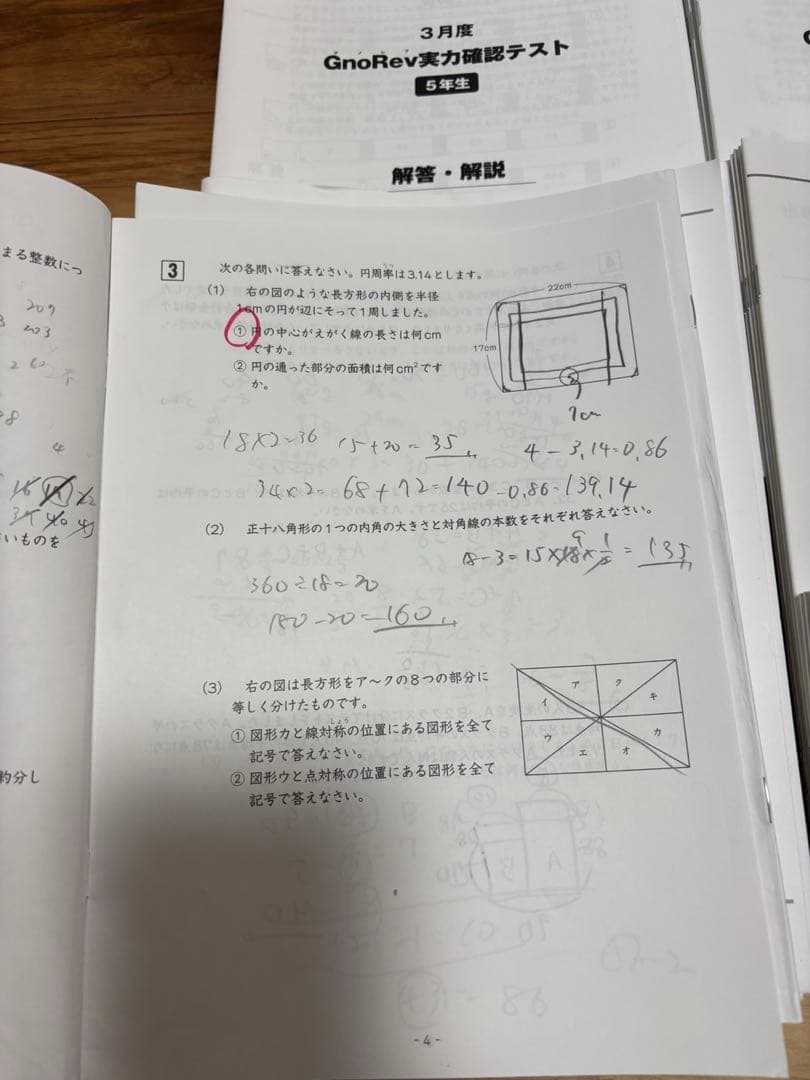 3月度
GnoRev実力確認テスト
5年生
解答・解説
まる整数につ
209
203
4
いものを
約分し
3 次の各問いに答えなさい。円周率は3.14とします。
(1) 右の図のような長方形の内側を半径
1cmの円が辺にそって1周しました。
① 円の中心がえがく線の長さは何cm
ですか。
② 円の通った部分の面積は何cm²です
か。
22cm
17cm
1cm
18×2=36 15+20=35 4-3.14=0.86
34×2=68+72=140-0.86=139.14
(2) 正十八角形の1つの内角の大きさと対角線の本数をそれぞれ答えなさい。
18-3=15×18×1/2=135
9
360÷18=20
180-20=160
(3) 右の図は長方形をア〜クの8つの部分に
等しく分けたものです。
① 図形カと線対称の位置にある図形を全て
しょう
記号で答えなさい。
② 図形ウと点対称の位置にある図形を全て
記号で答えなさい。
ア ク
イ キ
ウ カ
エ オ
-4-